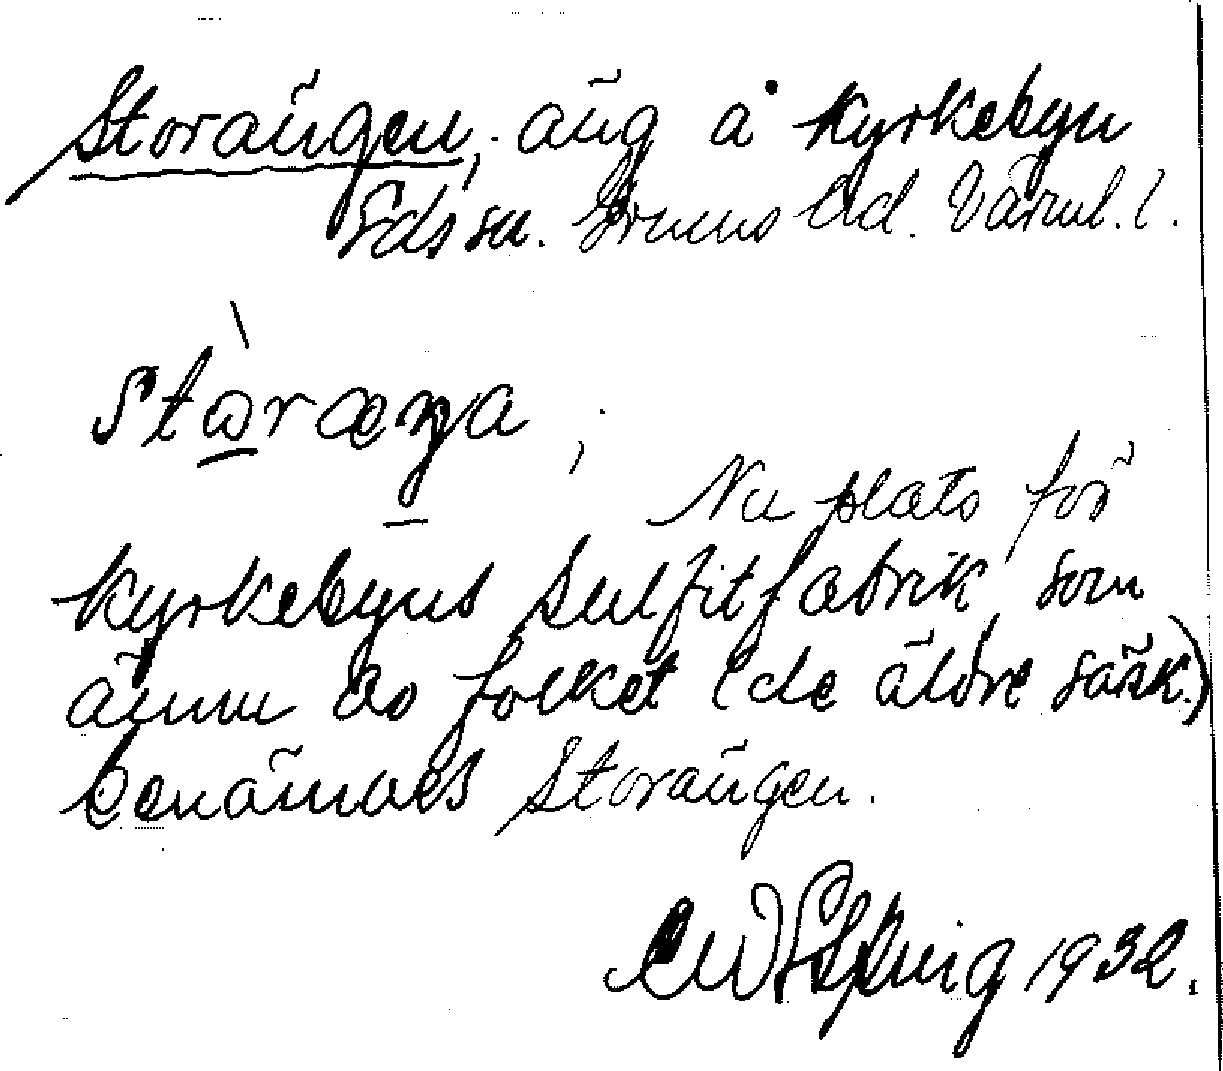 Storängen, äng å Kyrkebyn
Eds sn. Grums hd. Värml. l.
stὼræŋa,
Nu plats för
Kyrkebyns sulfitfabrik som
ännu av folket (de äldre särsk.)
benämnes Storängen.
1932.